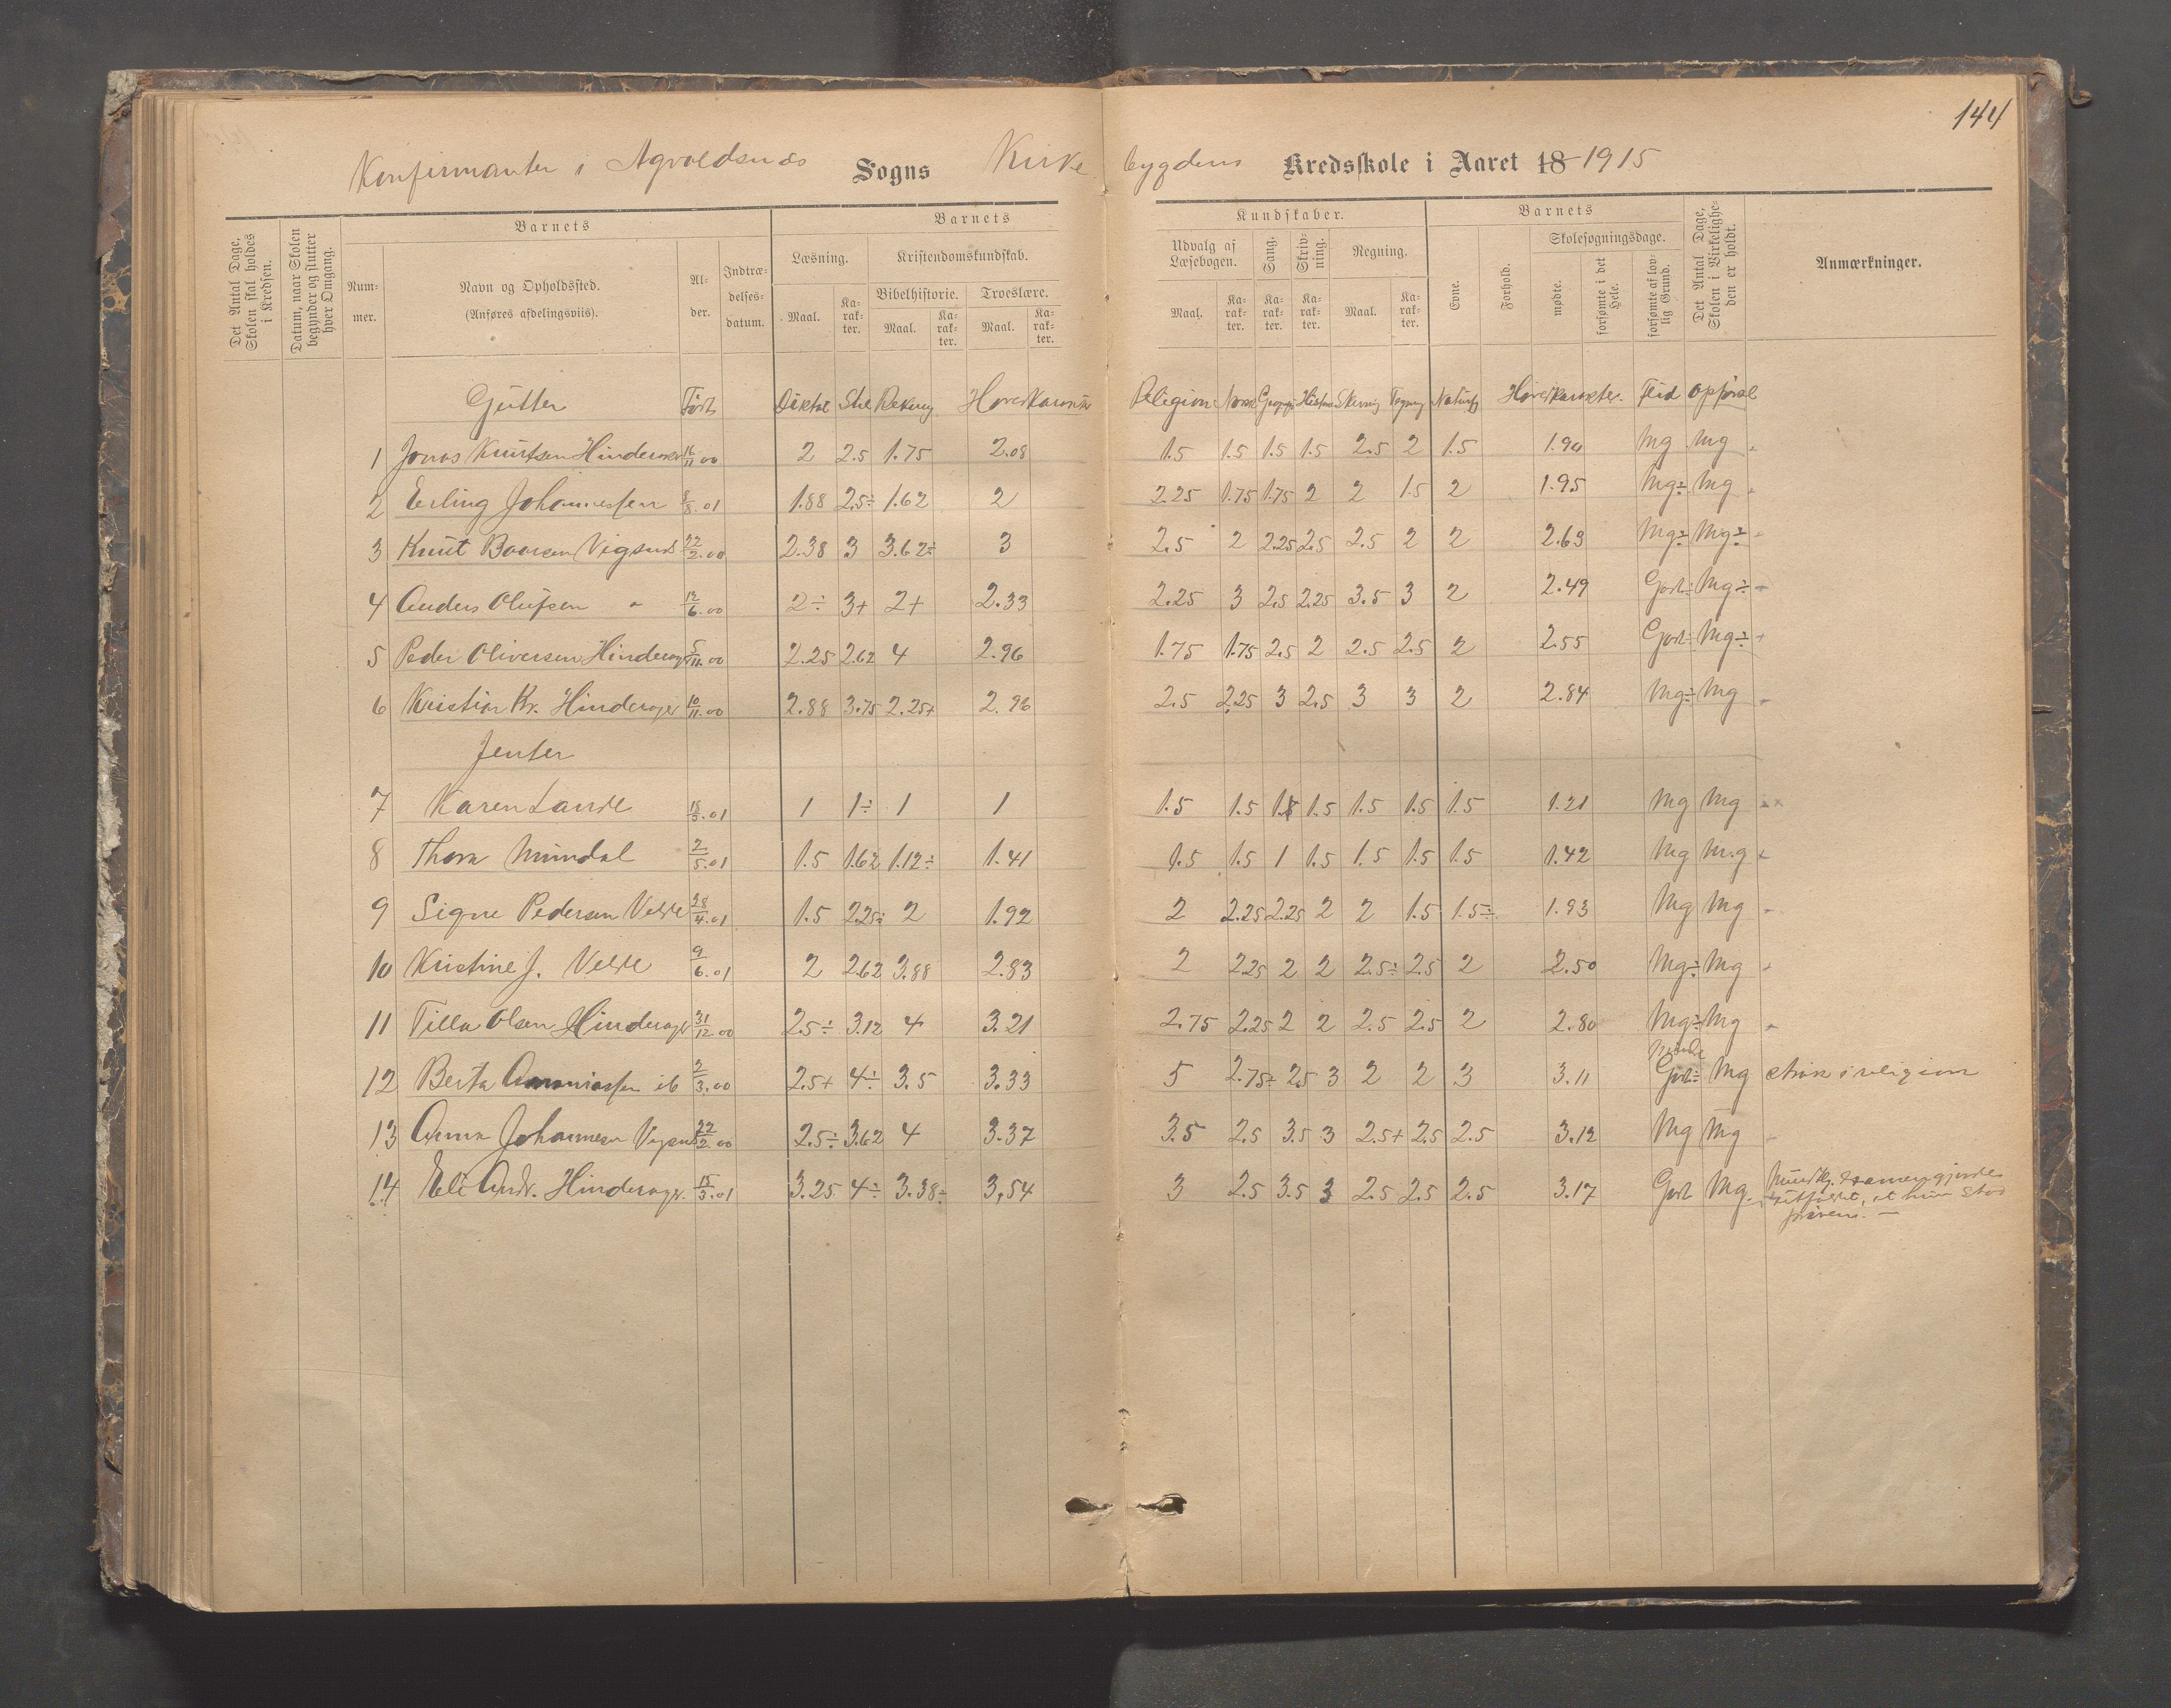 144
Konfirmanter i Agvaldsnes Sogns Kirkebygdens Kredsskole i Aaret 18 1915
Det Antal Dage, Skolen skal holdes i Kredsen.
Datum, naar Skolen begynder og slutter hver Omgang.
Nummer.
Barnets
Navn og Opholdssted.
(Anføres afdelingsviis).
Alder.
Indtrædelsesdatum.
Barnets
Læsning.
Maal.
Karakter.
Kristendomskundskab.
Bibelhistorie.
Maal.
Karakter.
Troeslære.
Maal.
Karakter.
Kundskaber.
Udvalg af Læsebogen.
Maal.
Karakter.
Sang.
Karakter.
Skrivning.
Karakter.
Regning.
Maal.
Karakter.
Barnets
Evne.
Forhold.
Skolesøgningsdage.
mødte.
forsømte i det Hele.
forsømte af lovlig Grund.
Det Antal Dage, Skolen i Virkeligheden er holdt.
Anmærkninger.
Gutter Født Diktat Stil Rekning Hovedkarakter Religion Norsk Geografi Historie Skrivning Tegning Naturf Hovedkarakter. Flid Opførsel
1 Jonas Knutsen Hinderaker 16/11 00 2 2.5 1.75 2.08 1.5 1.5 1.5 1.5 2.5 2 1.5 1.90 Mg Mg
2 Erling Johannessen 8/8. 01 1.88 2.5÷ 1.62 2 2.25 1.75 1.75 2 2 1.5 2 1.95 Mg÷ Mg
3 Knut Baarsen Vigsnes 22/2. 00 2.38 3 3.62÷ 3 2.5 2 2.25 2.5 2.5 2 2 2.63 Mg÷ Mg÷
4 Anders Olufsen " 12/6. 00 2÷ 3+ 2+ 2.33 2.25 3 2.5 2.25 3.5 3 2 2.49 Godt÷ Mg÷
5 Peder Oliversen Hinderager 5/11. 00 2.25 2.62 4 2.96 1.75 1.75 2.5 2 2.5 2.5 2 2.55 Godt÷ Mg÷
6 Kristian Kr. Hinderager 10/11. 00 2.88 3.75 2.25+ 2.96 2.5 2.25 3 2.5 3 3 2 2.84 Mg÷ Mg
Jenter
7 Karen Lande 18/3. 01 1 1÷ 1 1 1.5 1.5 1.5 1.5 1.5 1.5 1.21 Mg Mg
8 Thora Mundal 2/5. 01 1.5 1.62 1.12÷ 1.41 1.5 1.5 1 1.5 1.5 1.5 1.5 1.42 Mg M.g
9 Signe Pedersen Velde 28/4. 01 1.5 2.25÷ 2 1.92 2 2.25 2.25 2 2 1.5 1.5÷ 1.93 Mg Mg
10 Kristine J. Velde 9/6. 01 2 2.62 3.88 2.83 2 2.25 2 2 2.5÷ 2.5 2 2.50 Mg÷ Mg
11 Tilla Olsen Hinderager 31/12. 00 2.5÷ 3.12 4 3.21 2.75 2.25 2 2 2.5 2.5 2 2.80 Mg÷ Mg
12 Berta Ananiassen ib 2/3. 00 2.5+ 4÷ 3.5 3.33 5 2.75÷ 2.5 3 2 2 3 3.11 Godt÷ Mg strøk i religion
13 Anna Johannesen Vigsnes 22/2. 00 2.5÷ 3.62 4 3.37 3.5 2.5 3.5 3 2.5+ 2.5 2.5 3.12 Mg Mg
14 Eli Andr. Hinderager. 15/3. 01 3.25 4÷ 3.38÷ 3,54 3 2.5 3.5 3 2.5 2.5 2.5 3.17 Godt Mg. Mundtlig. Examen gjorde
utfaldet, at hun stod
prøven. —